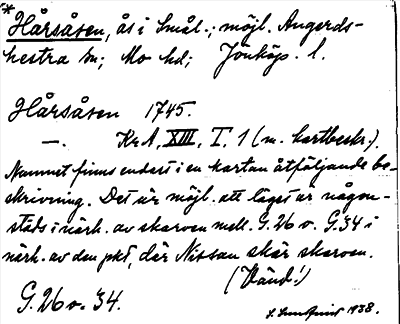 *Hårsåsen, ås i Smål.; möjl. Angerds-
hestra sn; Mo hd; Jönköp. l.
Hårsåsen 1745.
—. KrA, XIII, I. 1 (m. kartbeskr.).
Namnet finns endast i en kartan åtföljande be-
skrivning. Det är möjl. att läget är någon-
städs i närh. av skaroen mell. G. 26 o. G. 34 i
närh. av den pkt, där Nissan skär skaroen.
(Vänd!)
G. 26 o. 34.
1938.